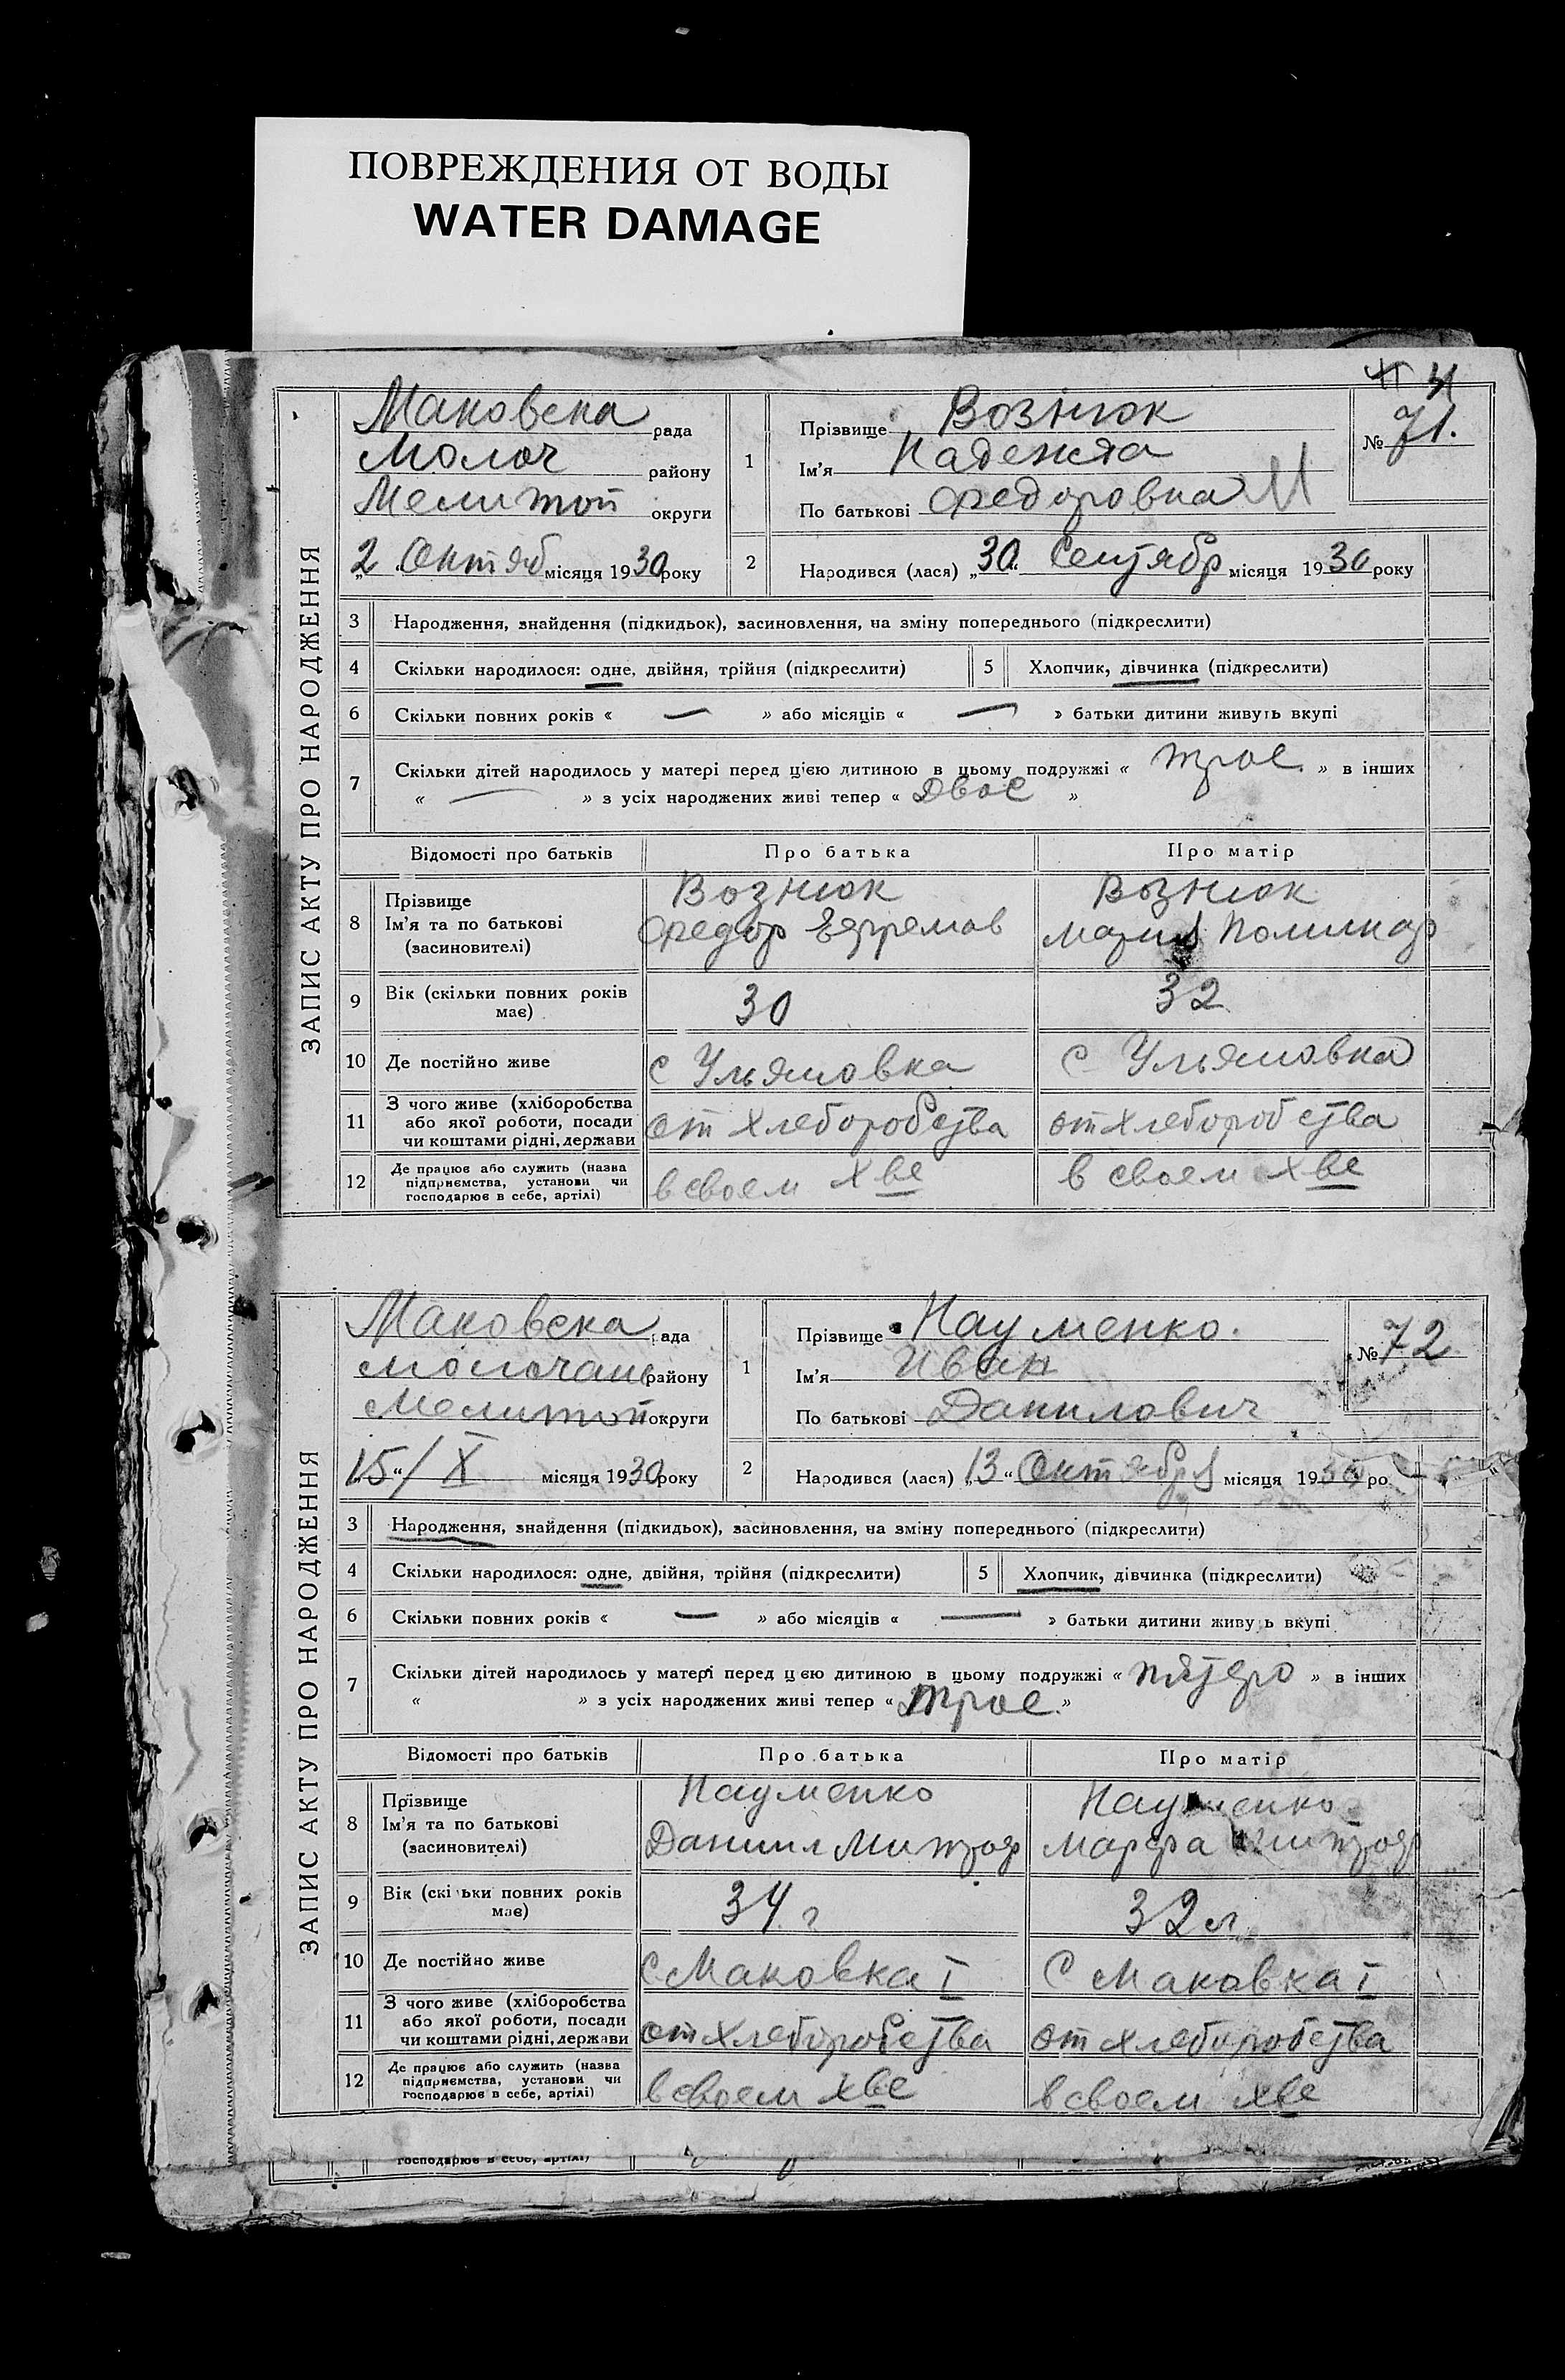 ПОВРЕЖДЕНИЯ ОТ ВОДЫ
WATER DAMAGE
ЗАПИС АКТУ ПРО НАРОДЖЕННЯ
Маковска рада
Молоч району
Мелитоп округи
„2 Октяб місяця 1930 року
1 Прізвище Вознюк
Ім’я Надежда
По батькові Федоровна
№ 71.
2 Народився (лася) „30“ Сентябр місяця 1930 року
3 Народження, знайдення (підкидьок), засиновлення, на зміну попереднього (підкреслити)
4 Скільки народилося: одне, двійня, трійня (підкреслити) 5 Хлопчик, дівчинка (підкреслити)
6 Скільки повних років « — » або місяців « — » батьки дитини живуть вкупі
7 Скільки дітей народилось у матері перед цією дитиною в цьому подружжі « трое » в інших
« — » з усіх народжених живі тепер « Двое »
Відомості про батьків Про батька Про матір
8 Прізвище Вознюк Вознюк
Ім’я та по батькові Федор Ефремов Мария Поликар
(засновителі)
9 Вік (скільки повних років має) 30 32
10 Де постійно живе с Ульяновка с Ульяновка
11 З чого живе (хліборобства
або якої роботи, посади
чи коштами рідні, держави от хлеборобства от хлеборобства
12 Де працює або служить (назва
підприємства, установи чи
господарює в себе, артілі) в своем хве в своем хве
ЗАПИС АКТУ ПРО НАРОДЖЕННЯ
Маковска рада
Молочанс району
Мелитоп округи
„15“/X місяця 1930 року
1 Прізвище Науменко.
Ім’я Иван
По батькові Данилович
№ 72
2 Народився (лася) „13“ Октября місяця 1930 ро
3 Народження, знайдення (підкидьок), засиновлення, на зміну попереднього (підкреслити)
4 Скільки народилося: одне, двійня, трійня (підкреслити) 5 Хлопчик, дівчинка (підкреслити)
6 Скільки повних років « — » або місяців « — » батьки дитини живуть вкупі
7 Скільки дітей народилось у матері перед цією дитиною в цьому подружжі « пятеро » в інших
« » з усіх народжених живі тепер « трое »
Відомості про батьків Про батька Про матір
8 Прізвище Науменко Науменко
Ім’я та по батькові Даниил Митроф Марфа
(засиновителі)
9 Вік (скільки повних років має) 34 г 32 л
10 Де постійно живе с Маковка I с Маковка I
11 З чого живе (хліборобства
або якої роботи, посади
чи коштами рідні, держави от хлеборобства от хлеборобства
12 Де працює або служить (назва
підприємства, установи чи
господарює в себе, артілі) в своем хве в своем хве
господарює в себе, артілі)